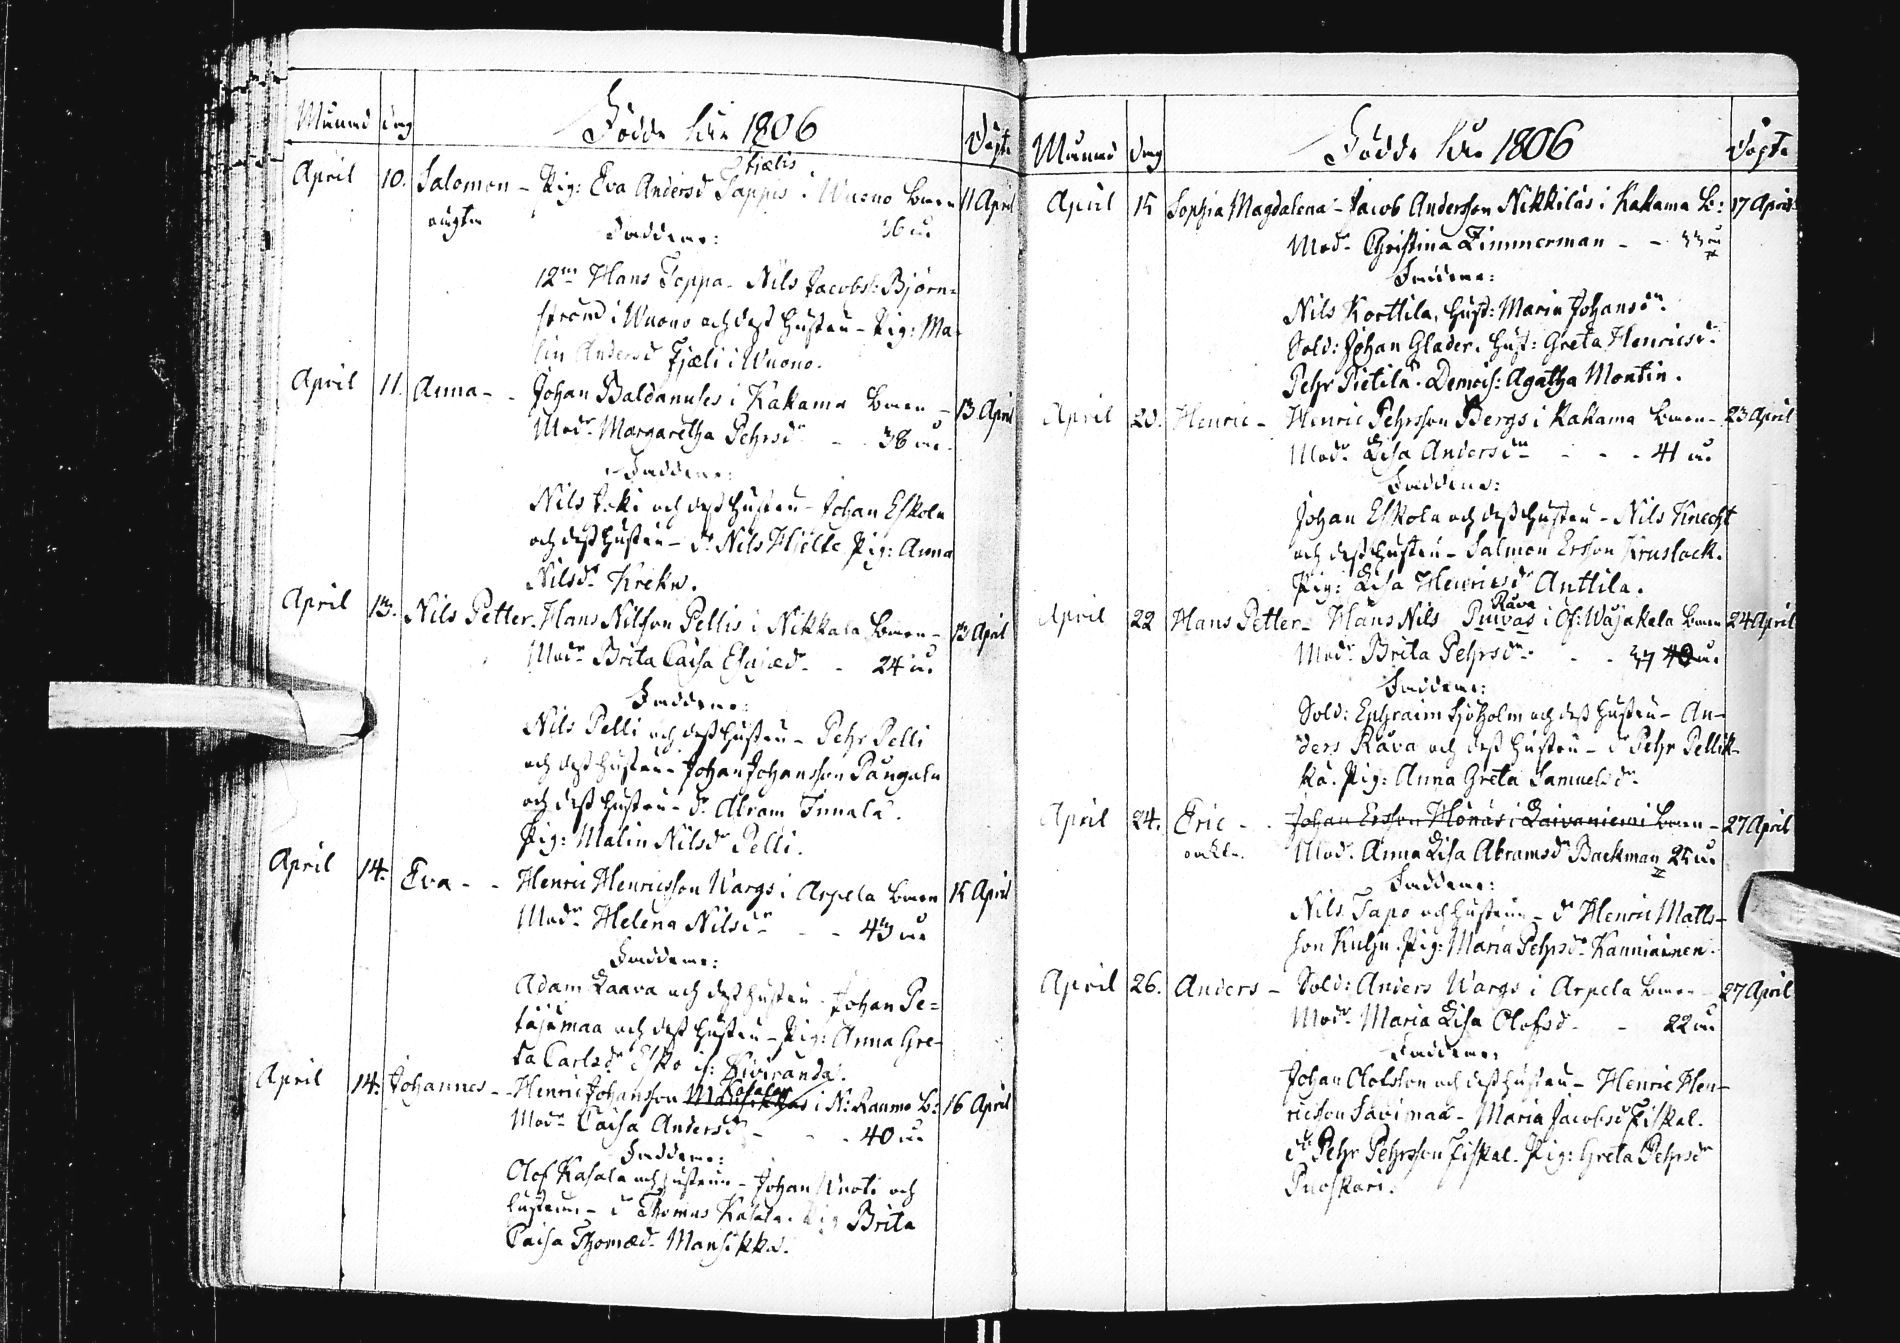 Månad dag Födde åhr 1806 Döpte
April 10. Salomon - Pig: Eva Andersd Tjælis i Wuono Barn 11 April
oägta
Faddrar: 36 år
Hans Toppa - Nils Jacobs: Björn=
ström i Wuono och dess Hustru - Pig: Ma-
lin Andersd Tjæli i Wuono.
April 11. Anna - Johan Baldanuses i Kakama Barn - 13 April
Modr Margaretha Pehrsdr - 38 år
Faddrar:
Nils Joki och dess Hustru - Johan Eskola
och dess Hustru - dr Nils Hjelte Pig: Anna
Nilsdr Kreku.
April 13. Nils Petter - Hans Nilsson Pellis i Nikkala Barn - 13 April
Modr Brita Caisa Esaiæd - 24 år
Faddrar:
Nils Pelli och dess Hustru - Pehr Pelli
och dess Hustru - Johan Johansson Pangalu
och dess Hustru - dr Abram Innala.
Pig: Malin Nilsdr Pelli.
April 14. Eva - - Henric Henricsson Wargs i Arpela Barn 15 April
Modr Helena Nilsdr - - 43 år
Faddrar:
Adam Laava och dess Hustru - Johan Pe=
täjämaa och dess Hustru - Pig: Anna Gre-
ta Carlsdr Kiviranda.
April 14. Johannes - Henric Johansson Kasalas i N: Raumo B: 16 April
Modr Caisa Andersdr - - 40 år
Faddrar:
Olof Kasala och Hustrun - Johan Wuoti och
hustrun - dr Thomas Kasala. Pig Brita
Caisa Thomæd. Mansikka.
Månad dag Födde åhr 1806 Döpte
April 15 Sophia Magdalena - Jacob Andersson Nikkilas i Kakama B: 17 April
Modr Christina Zimmerman - - 33 år
Faddrar:
Nils Korttila, Hust: Maria Johansdr
Sold: Johan Glader. Hust: Greta Henricsdr
Pehr Pietilä. Demois: Agatha Montin.
April 20. Henric - Henric Pehrsson Bergs i Kakama Barn - 23 April
Modr Lisa Andersdr - - - 41 år
Faddrar:
Johan Eskola och dess Hustru - Nils Knecht
och dess Hustru - Salmon Ersson Kruslock.
Pig: Lisa Henricsdr Anttila.
April 22 Hans Petter - Hans Nils Rava i Of: Wojakala Barn 24 April
Modr Brita Pehrsdr - - 37 år
Faddrar:
Sold: Ephraim Sjöholm och dess Hustru - An-
ders Rava och dess Hustru - dr Pehr Pellik-
ka. Pig: Anna Greta Samuelsdr
April 24. Eric - - Johan Ersson Honas i Laivaniemi Barn - 27 April
oäkta. Modr Anna Lisa Abramsdr Backman 25 år
Faddrar:
Nils Tapo och hustrun - dr Henric Matts-
son Pig: Maria Pehrsdr Kanniainen.
April 26. Anders - Sold: Anders Wargs i Arpela Barn - 27 April
Modr Maria Lisa Olofsd - - 22 år
Faddrar:
Johan Olofsson och dess hustru - Henric Hen-
ricsson Savimaa - Maria Jacobsd Fiskal.
dr Pehr Pehrsson Fiskal. Pig: Greta Pehrsdr
Puoskari.